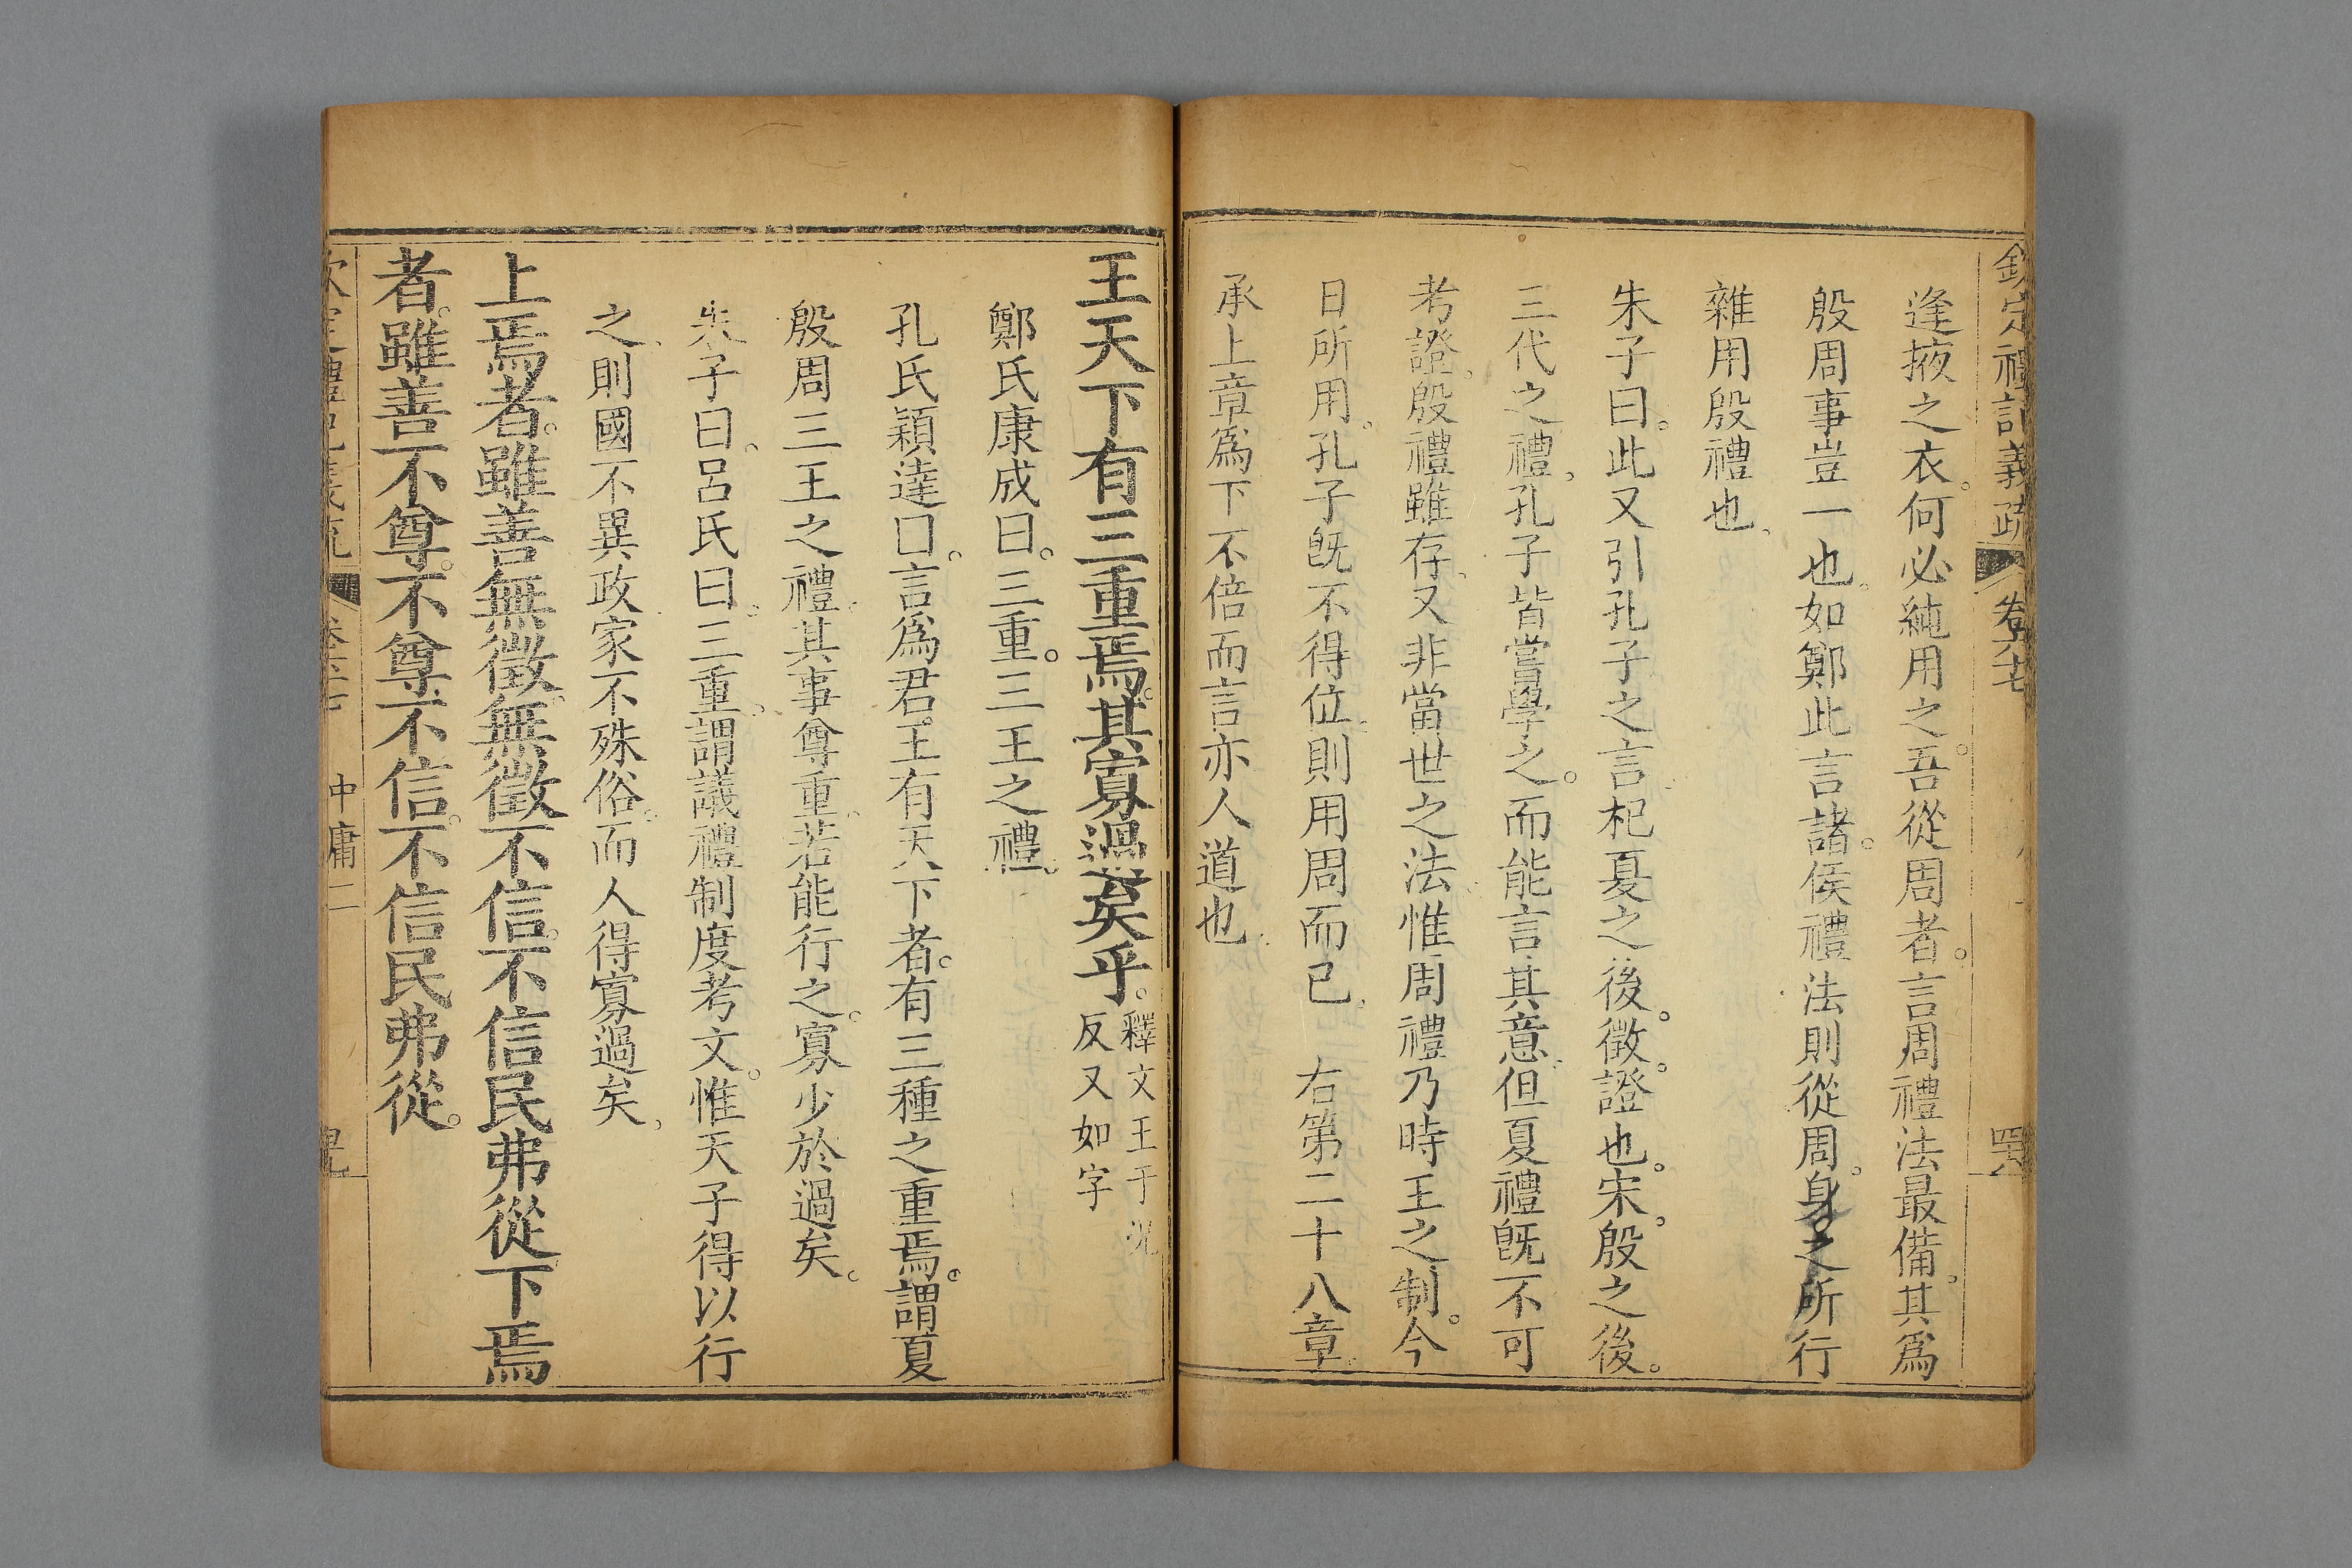 欽定禮記義疏 卷六十七 哭
逢掖之衣。何必純用之。吾從周者。言周禮法最備。其爲
殷周事豈一也。如鄭此言諸。侯禮法則從周。身之所行
雜用殷禮也。
朱子曰。此又引孔子之言杞夏之後。徵。證也。宋。殷之後。
三代之禮。孔子皆嘗學之。而能言其意。但夏禮旣不可
考證。殷禮雖存。又非當世之法。惟周禮乃時王之制。今
日所用。孔子旣不得位。則用周而已。 右第二十八章。
承上章爲下不倍而言亦人道也。
王天下有三重焉。其寡過矣乎。
釋文王于況
反又如字
鄭氏康成曰。三重。三王之禮。
孔氏穎達曰。言爲君王有天下者。有三種之重焉。謂夏
殷周三王之禮。其事尊重。若能行之。寡少於過矣。
朱子曰。呂氏曰。三重。謂議禮制度考文。惟天子得以行
之。則國不異政。家不殊俗。而人得寡過矣。
上焉者。雖善無徵。無徵不信。不信民弗從。下焉
者。雖善不尊。不尊不信。不信民弗從。
中庸二